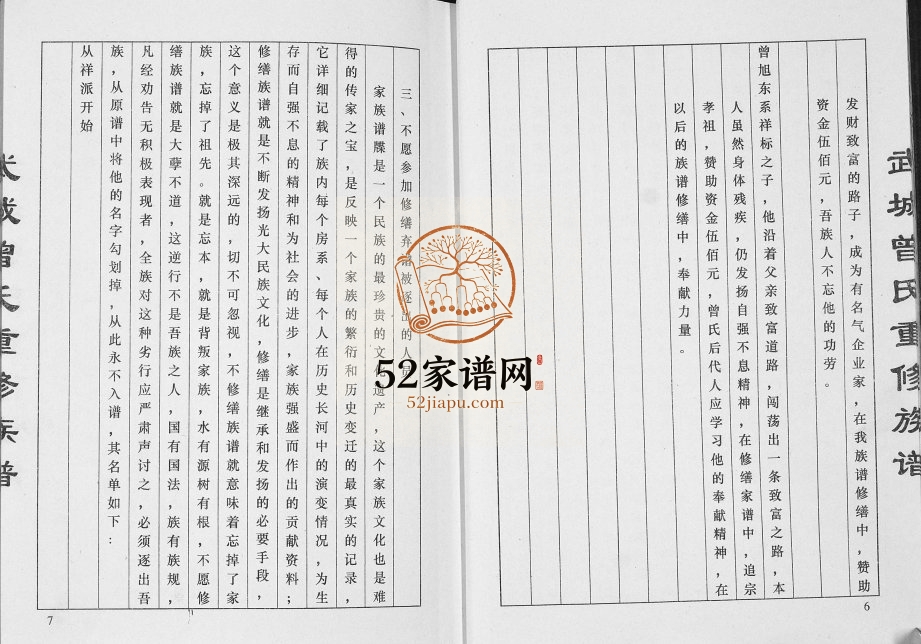 武城曾氏重修族谱
发财致富的路子，成为有名气企业家，在我族谱修缮中，赞助
资金伍佰元，吾族人不忘他的功劳。
曾旭东系祥标之子，他沿着父亲致富道路，闯荡出一条致富之路，本
人虽然身体残疾，仍发扬自强不息精神，在修缮家谱中，追宗
孝祖，赞助资金伍佰元，曾氏后代人应学习他的奉献精神，在
以后的族谱修缮中，奉献力量。
6
三、不愿参加修缮弃谱被逐出的人员
家族谱牒是一个民族的最珍贵的文化遗产，这个家族文化也是难
得的传家之宝，是反映一个家族的繁衍和历史变迁的最真实的记录，
它详细记载了族内每个房系、每个人在历史长河中的演变情况，为生
存而自强不息的精神和为社会的进步，家族强盛而作出的贡献资料；
修缮族谱就是不断发扬光大民族文化，修缮是继承和发扬的必要手段，
这个意义是极其深远的，切不可忽视，不修缮族谱就意味着忘掉了家
族，忘掉了祖先。就是忘本，就是背叛家族，水有源树有根，不愿修
缮族谱就是大孽不道，这逆行不是吾族之人，国有国法，族有族规，
凡经劝告无积极表现者，全族对这种劣行应严肃声讨之，必须逐出吾
族，从原谱中将他的名字勾划掉，从此永不入谱，其名单如下：
从祥派开始
7
武城曾氏重修族谱
52家谱网
52jiapu.com